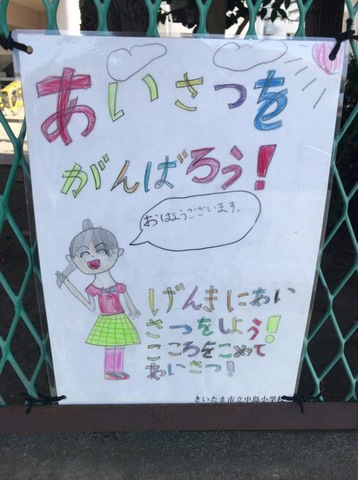 あいさつを
がんばろう!
おはようございます。
げんきにあい
さつをしよう!
こころをこめて
あいさつ!
さいたま市立中島小学校